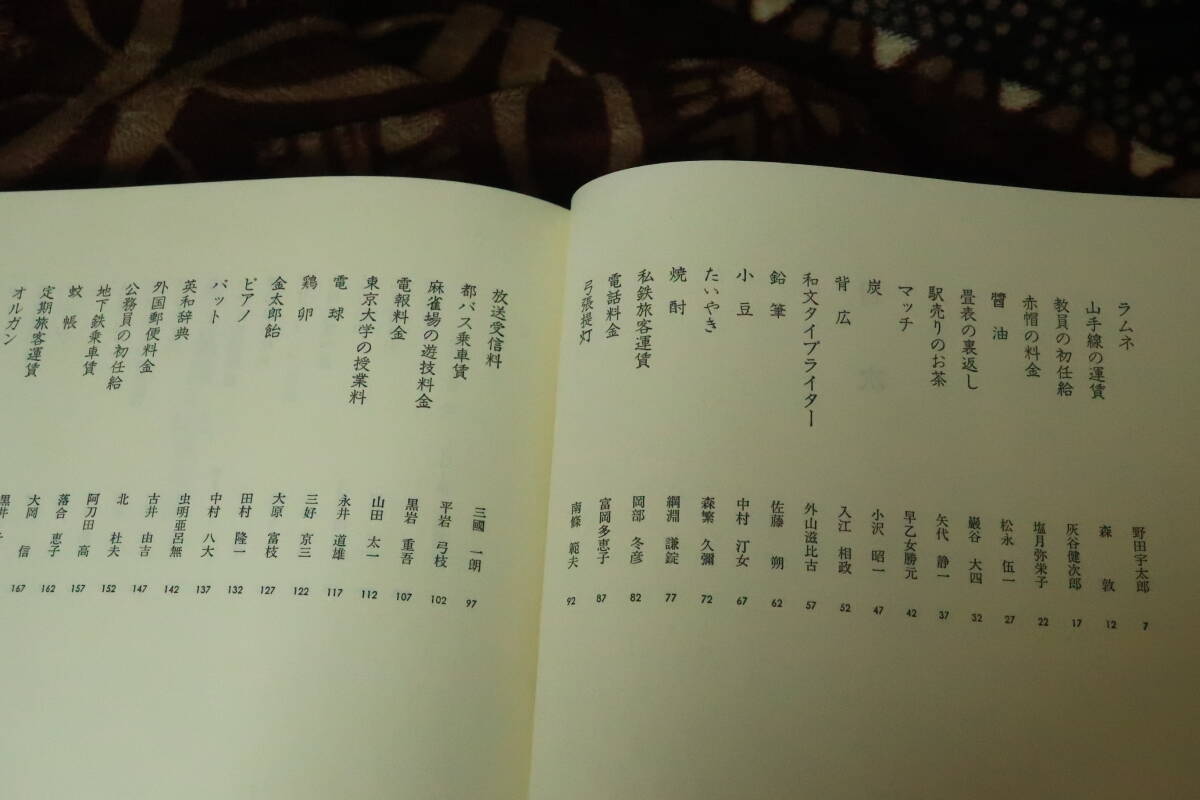 ラムネ 野田宇太郎 7
山手線の運賃 森敦 12
教員の初任給 灰谷健次郎 17
赤帽の料金 塩月弥栄子 22
醤油 松永伍一 27
畳表の裏返し 巌谷大四 32
駅売りのお茶 矢代静一 37
マッチ 早乙女勝元 42
炭 小沢昭一 47
背広 入江相政 52
和文タイプライター 外山滋比古 57
鉛筆 佐藤朔 62
小豆 中村汀女 67
たいやき 森繁久彌 72
焼酎 綱淵謙錠 77
私鉄旅客運賃 岡部冬彦 82
電話料金 富岡多恵子 87
弓張提灯 南條範夫 92
放送受信料 三國一朗 97
都バス乗車賃 平岩弓枝 102
麻雀場の遊技料金 黒岩重吾 107
電報料金 山田太一 112
東京大学の授業料 永井道雄 117
電球 三好京三 122
鶏卵 大原富枝 127
金太郎飴 田村隆一 132
ピアノ 中村八大 137
バット 虫明亜呂無 142
英和辞典 古井由吉 147
外国郵便料金 北杜夫 152
公務員の初任給 阿刀田高 157
地下鉄乗車賃 落合恵子 162
蚊帳 大岡信 167
定期旅客運賃 黒井千
オルガン